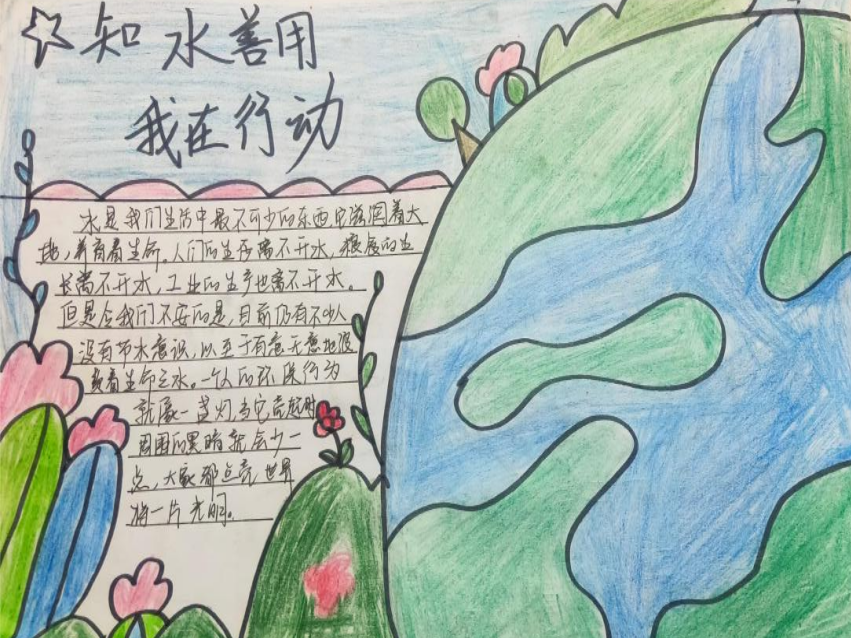 知水善用
我在行动
水是我们生活中最不可少的东西,它滋润着大
地,养育着生命。人们的生存离不开水,粮食的生
长离不开水,工业的生产也离不开水。
但是令我们不安的是,目前仍有不少人
没有节水意识,以至于有意无意地浪
费着生命之水。一个人的环保行为
就像一盏灯,当它亮起时
周围的黑暗就会少一
点,大家都点亮,世界
将一片光明。